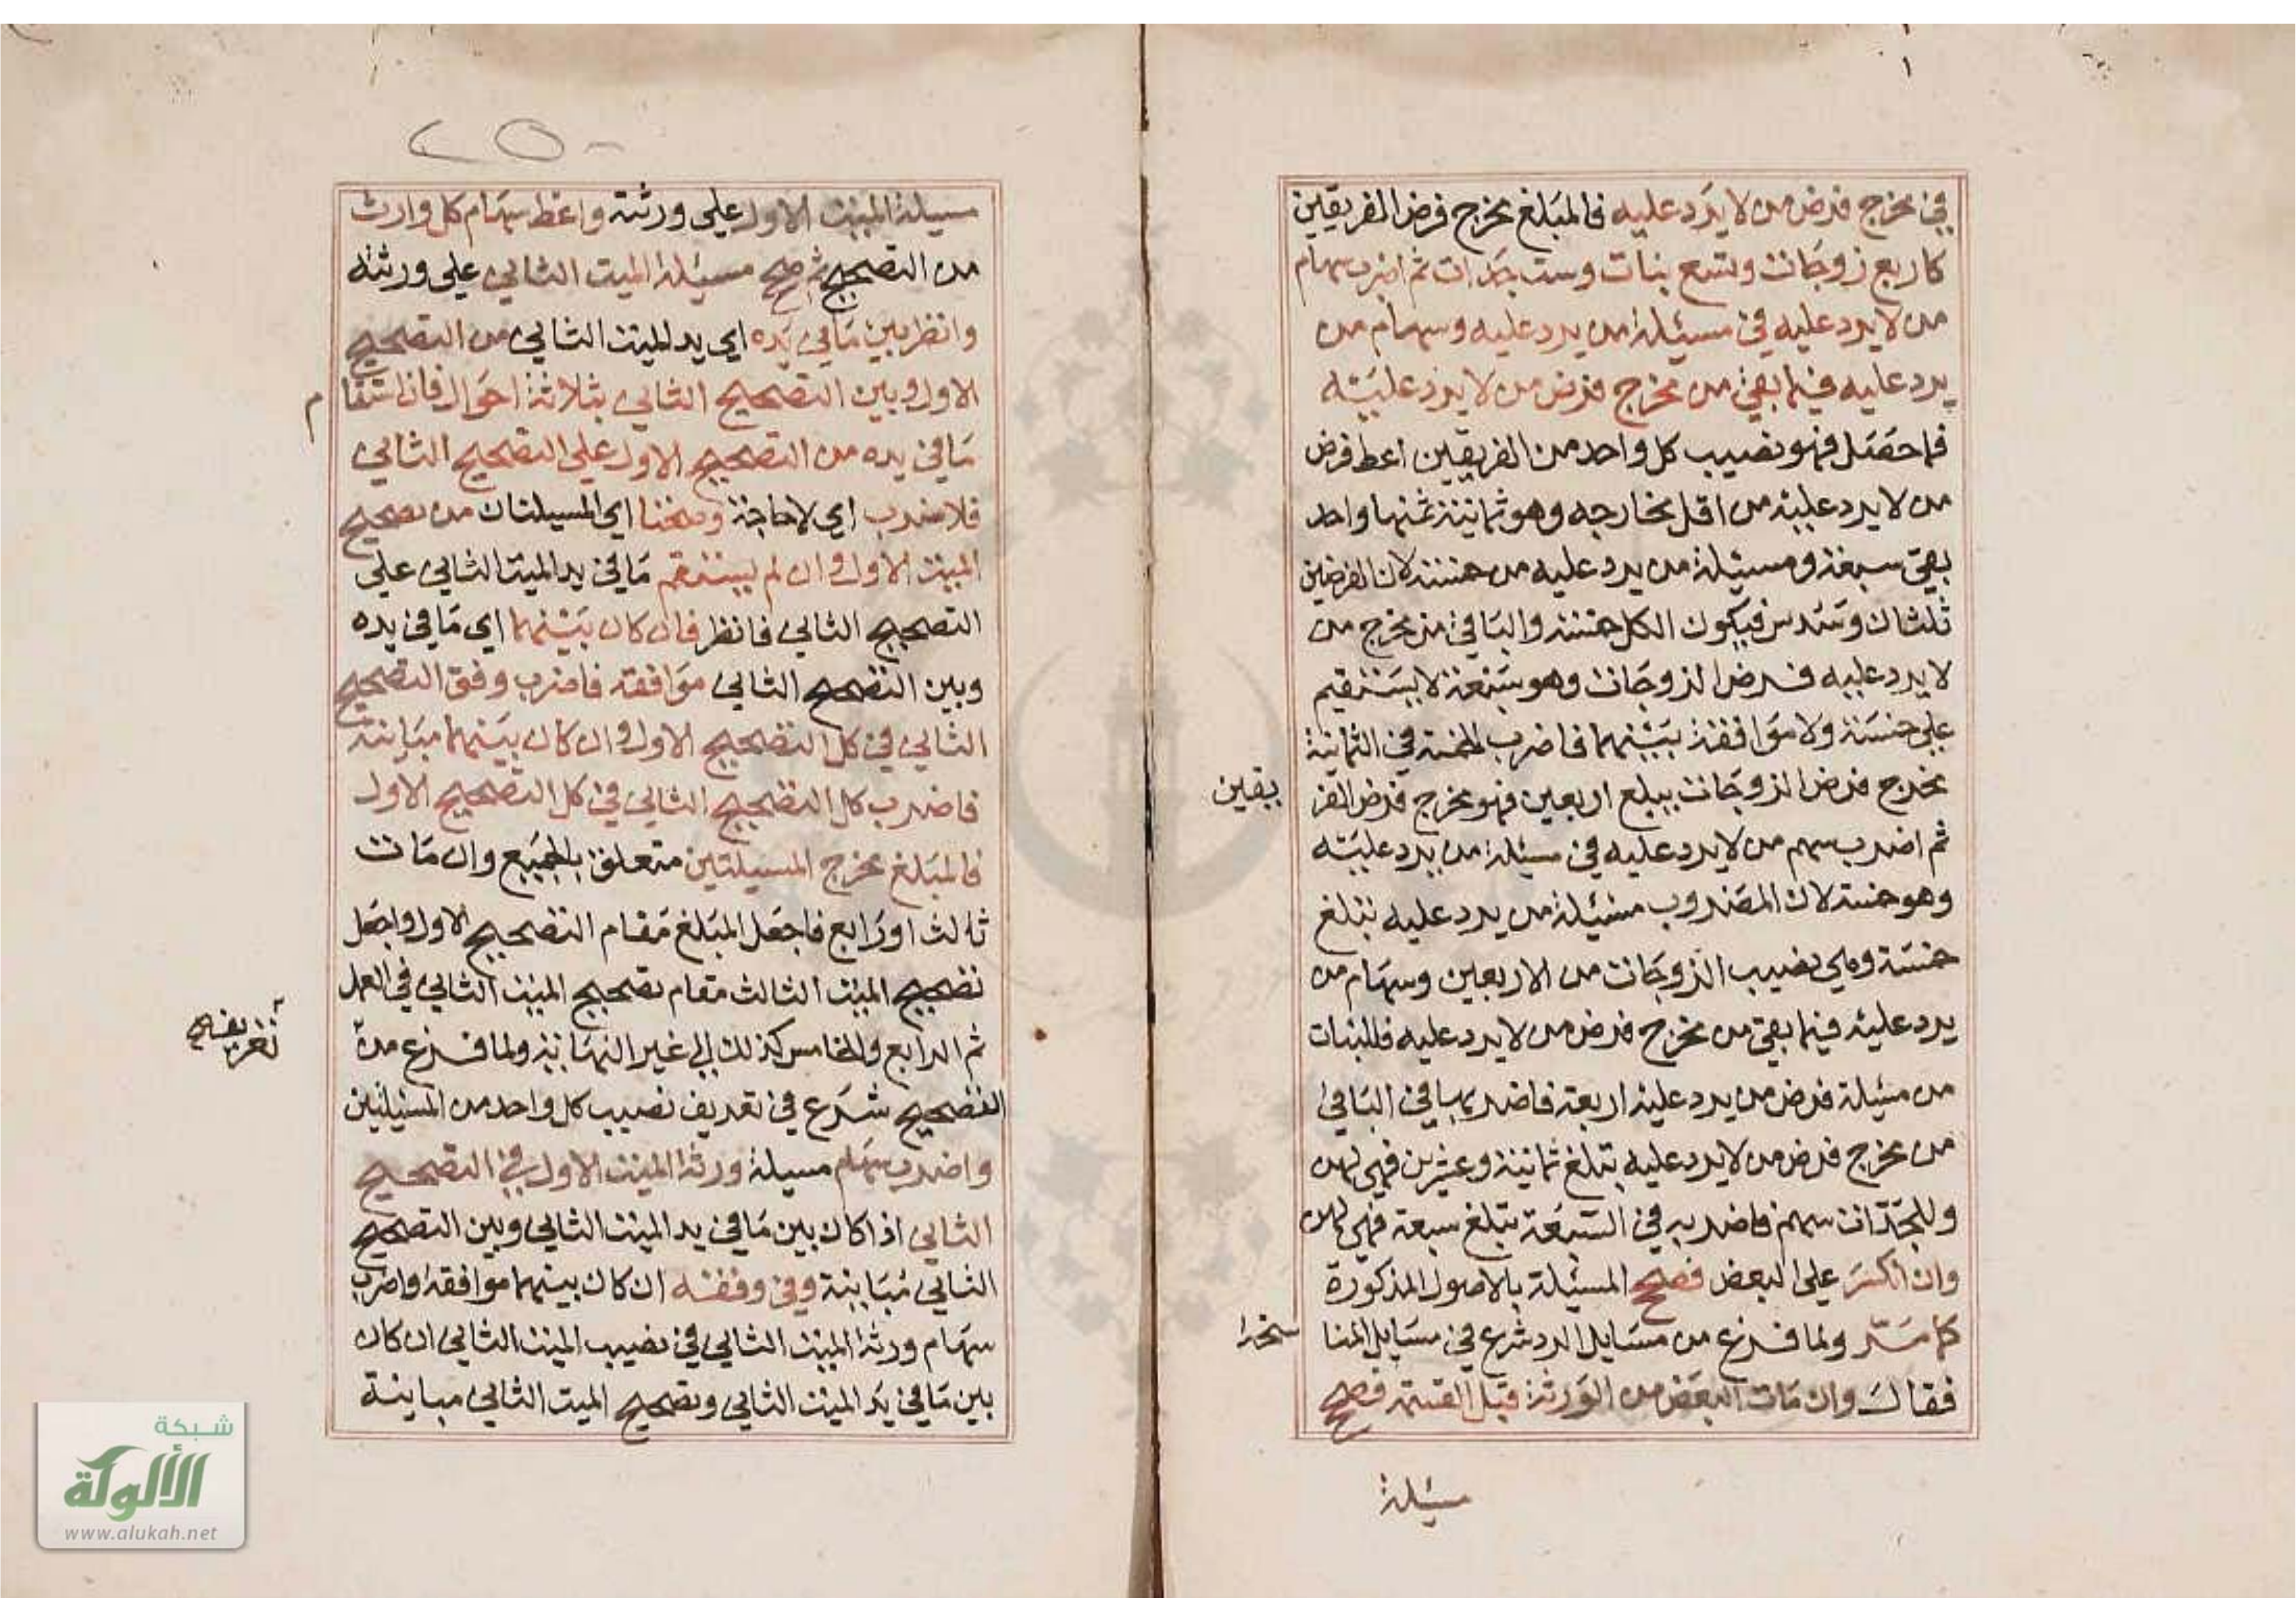 في مخرج فرض من لا يرد عليه فالمبلغ مخرج فرض الفريقين
كاربع زوجات وتسع بنات وست جدات ثم اضرب سهام
من لا يرد عليه في مسئلة من يرد عليه وسهام من
يرد عليه فيما بقي من مخرج فرض من لا يرد عليه
فما حصل فهو نصيب كل واحد من الفريقين اعط فرض
من لا يرد عليه من اقل مخارجه وهو ثمانية ثمنها واحد
بقي سبعة ومسئلة من يرد عليه من خمسة لان الفرضين
ثلثان وسدس فيكون الكل خمسة والباقي من مخرج من
لا يرد عليه فرض الزوجات وهو سبعة لا يستقيم
على خمسة ولا موافقة بينهما فاضرب الخمسة في الثمانية
مخرج فرض الزوجات يبلغ اربعين فهو مخرج فرض الفر
يقين
ثم اضرب سهم من لا يرد عليه في مسئلة من يرد عليه
وهو خمسة لان المضروب مسئلة من يرد عليه تبلغ
خمسة وهي نصيب الزوجات من الاربعين وسهام من
يرد عليه فيما بقي من مخرج فرض من لا يرد عليه فللبنات
من مسئلة فرض من يرد عليه اربعة فاضربها في الباقي
من مخرج فرض من لا يرد عليه تبلغ ثمانية وعشرين فهي لهن
وللجدات سهم فاضربه في السبعة تبلغ سبعة فهي لهن
وان انكسر على البعض فصحح المسئلة بالاصول المذكورة
كما مر ولما فرغ من مسايل الرد شرع في مسايل المنا
سخرا
فقال وان مات البعض من الورثة قبل القسمة فصحح
مسئلة
٢٥
مسيلة الميت الاول على ورثته واعط سهام كل وارث
من التصحيح ثم صحح مسئلة الميت الثاني على ورثته
وانظر بين ما في يده اي يد الميت الثاني من التصحيح
الاول وبين التصحيح الثاني بثلاثة احوال فان استقام
ما في يده من التصحيح الاول على التصحيح الثاني
فلا ضرب اي لا حاجة وصحتا اي المسيلتان من تصحيح
الميت الاول وان لم يستقم ما في يد الميت الثاني على
التصحيح الثاني فانظر فان كان بينهما اي ما في يده
وبين التصحيح الثاني موافقة فاضرب وفق التصحيح
الثاني في كل التصحيح الاول وان كان بينهما مباينة
فاضرب كل التصحيح الثاني في كل التصحيح الاول
فالمبلغ مخرج المسيلتين متعلق بالجميع وان مات
ثالث او رابع فاجعل المبلغ مقام التصحيح الاول واجعل
تصحيح الميت الثالث مقام تصحيح الميت الثاني في العمل
ثم الرابع والخامس كذلك الى غير النهاية ولما فرغ من
التصحيح شرع في تعريف نصيب كل واحد من المسئلتين
واضرب سهام مسيلة ورثة الميت الاول في التصحيح
الثاني اذا كان بين ما في يد الميت الثاني وبين التصحيح
الثاني مباينة وفي وفقه ان كان بينهما موافقة واضرب
سهام ورثة الميت الثاني في نصيب الميت الثاني ان كان
بين ما في يد الميت الثاني وتصحيح الميت الثاني مباينة
شبكة
الألوكة
www.alukah.net